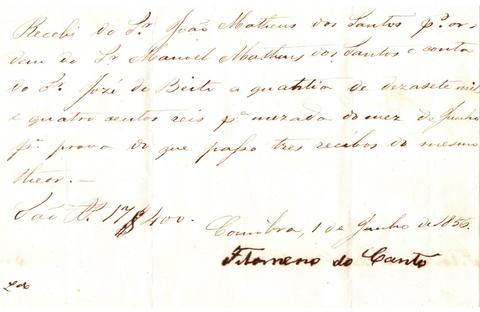 Recebi do Sr. João Matheus dos Santos pr. or-
dem do Sr. Manoel Matheus dos Santos e conta
do Sr. José de Brito a quantia de dezasete mil
e quatro centos reis pa. mezada do mez de Junho
pr. prova do que passo tres recibos do mesmo
theor. —
São Rs. 17$400.
Coimbra, 1 de Junho de 1856.
Filomeno do Canto